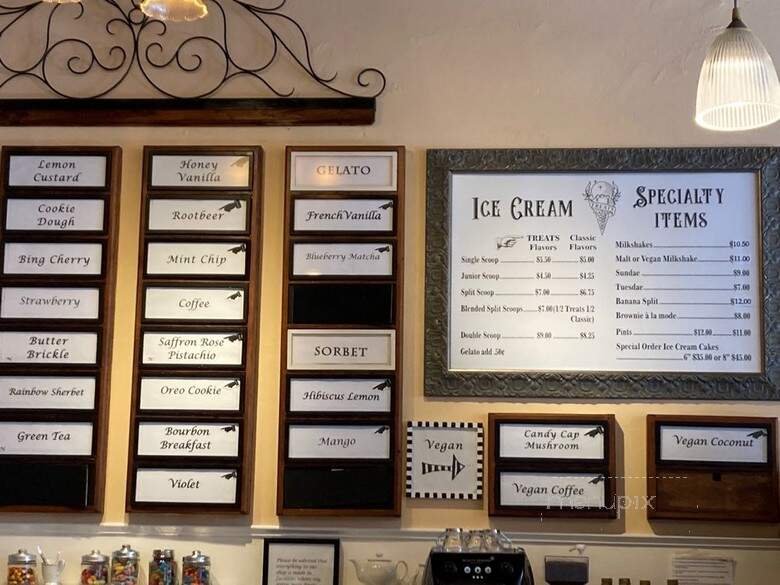 Lemon
Custard
Cookie
Dough
Bing Cherry
Strawberry
Butter
Brickle
Rainbow Sherbet
Green Tea
Honey
Vanilla
Rootbeer
Mint Chip
Coffee
Saffron Rose
Pistachio
Oreo Cookie
Bourbon
Breakfast
Violet
GELATO
French Vanilla
Blueberry Matcha
SORBET
Hibiscus Lemon
Mango
Vegan
Candy Cap
Mushroom
Vegan Coffee
Vegan Coconut
ICE CREAM
TREATS Classic
Flavors Flavors
Single Scoop $5.50 $5.00
Junior Scoop $4.50 $4.25
Split Scoop $7.00 $6.75
Blended Split Scoops $7.00(1/2 Treats 1/2
Classic)
Double Scoop $9.00 $8.25
Gelato add .50¢
SPECIALTY
ITEMS
Milkshakes $10.50
Malt or Vegan Milkshake $11.00
Sundae $9.00
Tuesdae $7.00
Banana Split $12.00
Brownie à la mode $8.00
Pints $12.00 $11.00
Special Order Ice Cream Cakes
6" $35.00 or 8" $45.00
menupix
Please be advised that
everything to eat